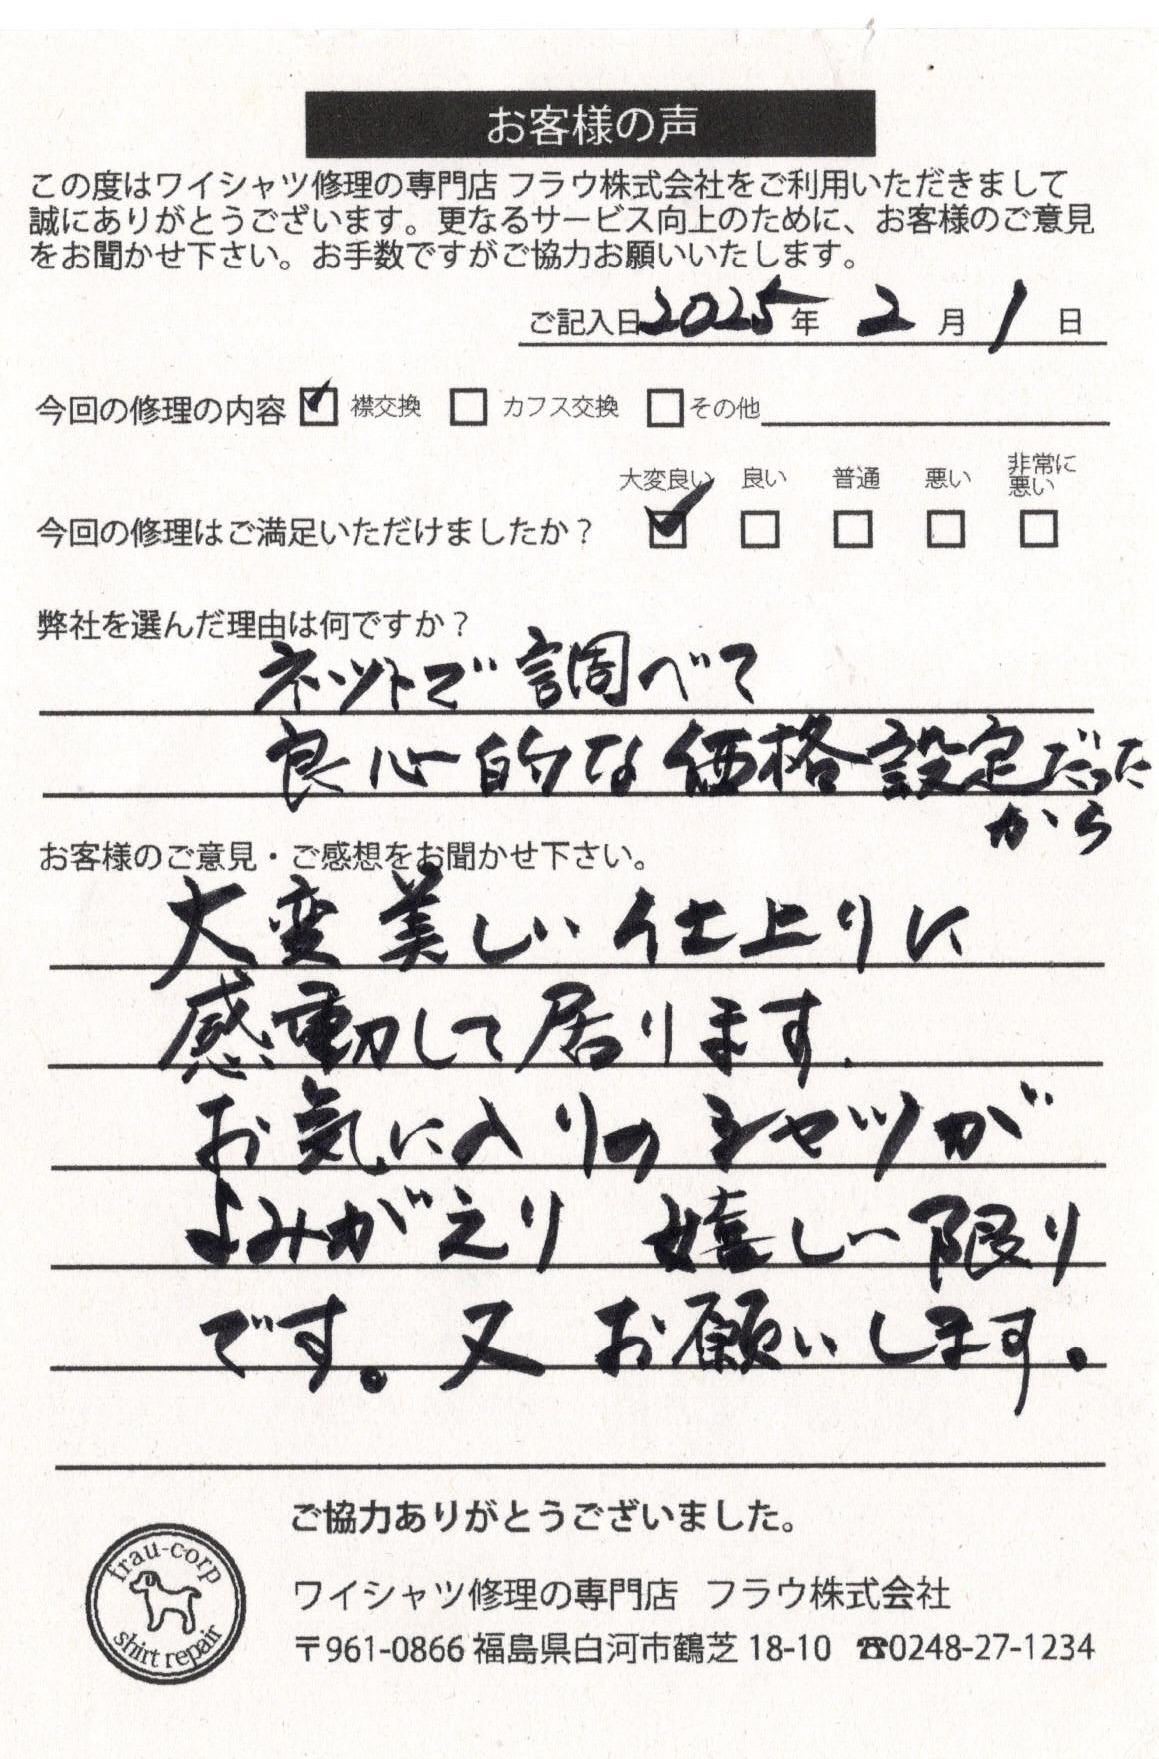 お客様の声
この度はワイシャツ修理の専門店 フラウ株式会社をご利用いただきまして
誠にありがとうございます。更なるサービス向上のために、お客様のご意見
をお聞かせ下さい。お手数ですがご協力お願いいたします。
ご記入日2025年 2月 1日
今回の修理の内容 襟交換 カフス交換 その他
大変良い 良い 普通 悪い 非常に悪い
今回の修理はご満足いただけましたか？
弊社を選んだ理由は何ですか？
ネットで調べて
良心的な価格設定だった
から
お客様のご意見・ご感想をお聞かせ下さい。
大変美しい仕上りに
感動して居ります.
お気に入りのシャツが
よみがえり 嬉しい限り
です。又 お願いします。
ご協力ありがとうございました。
frau-corp
shirt repair
ワイシャツ修理の専門店 フラウ株式会社
〒961-0866 福島県白河市鶴芝 18-10 ☎0248-27-1234